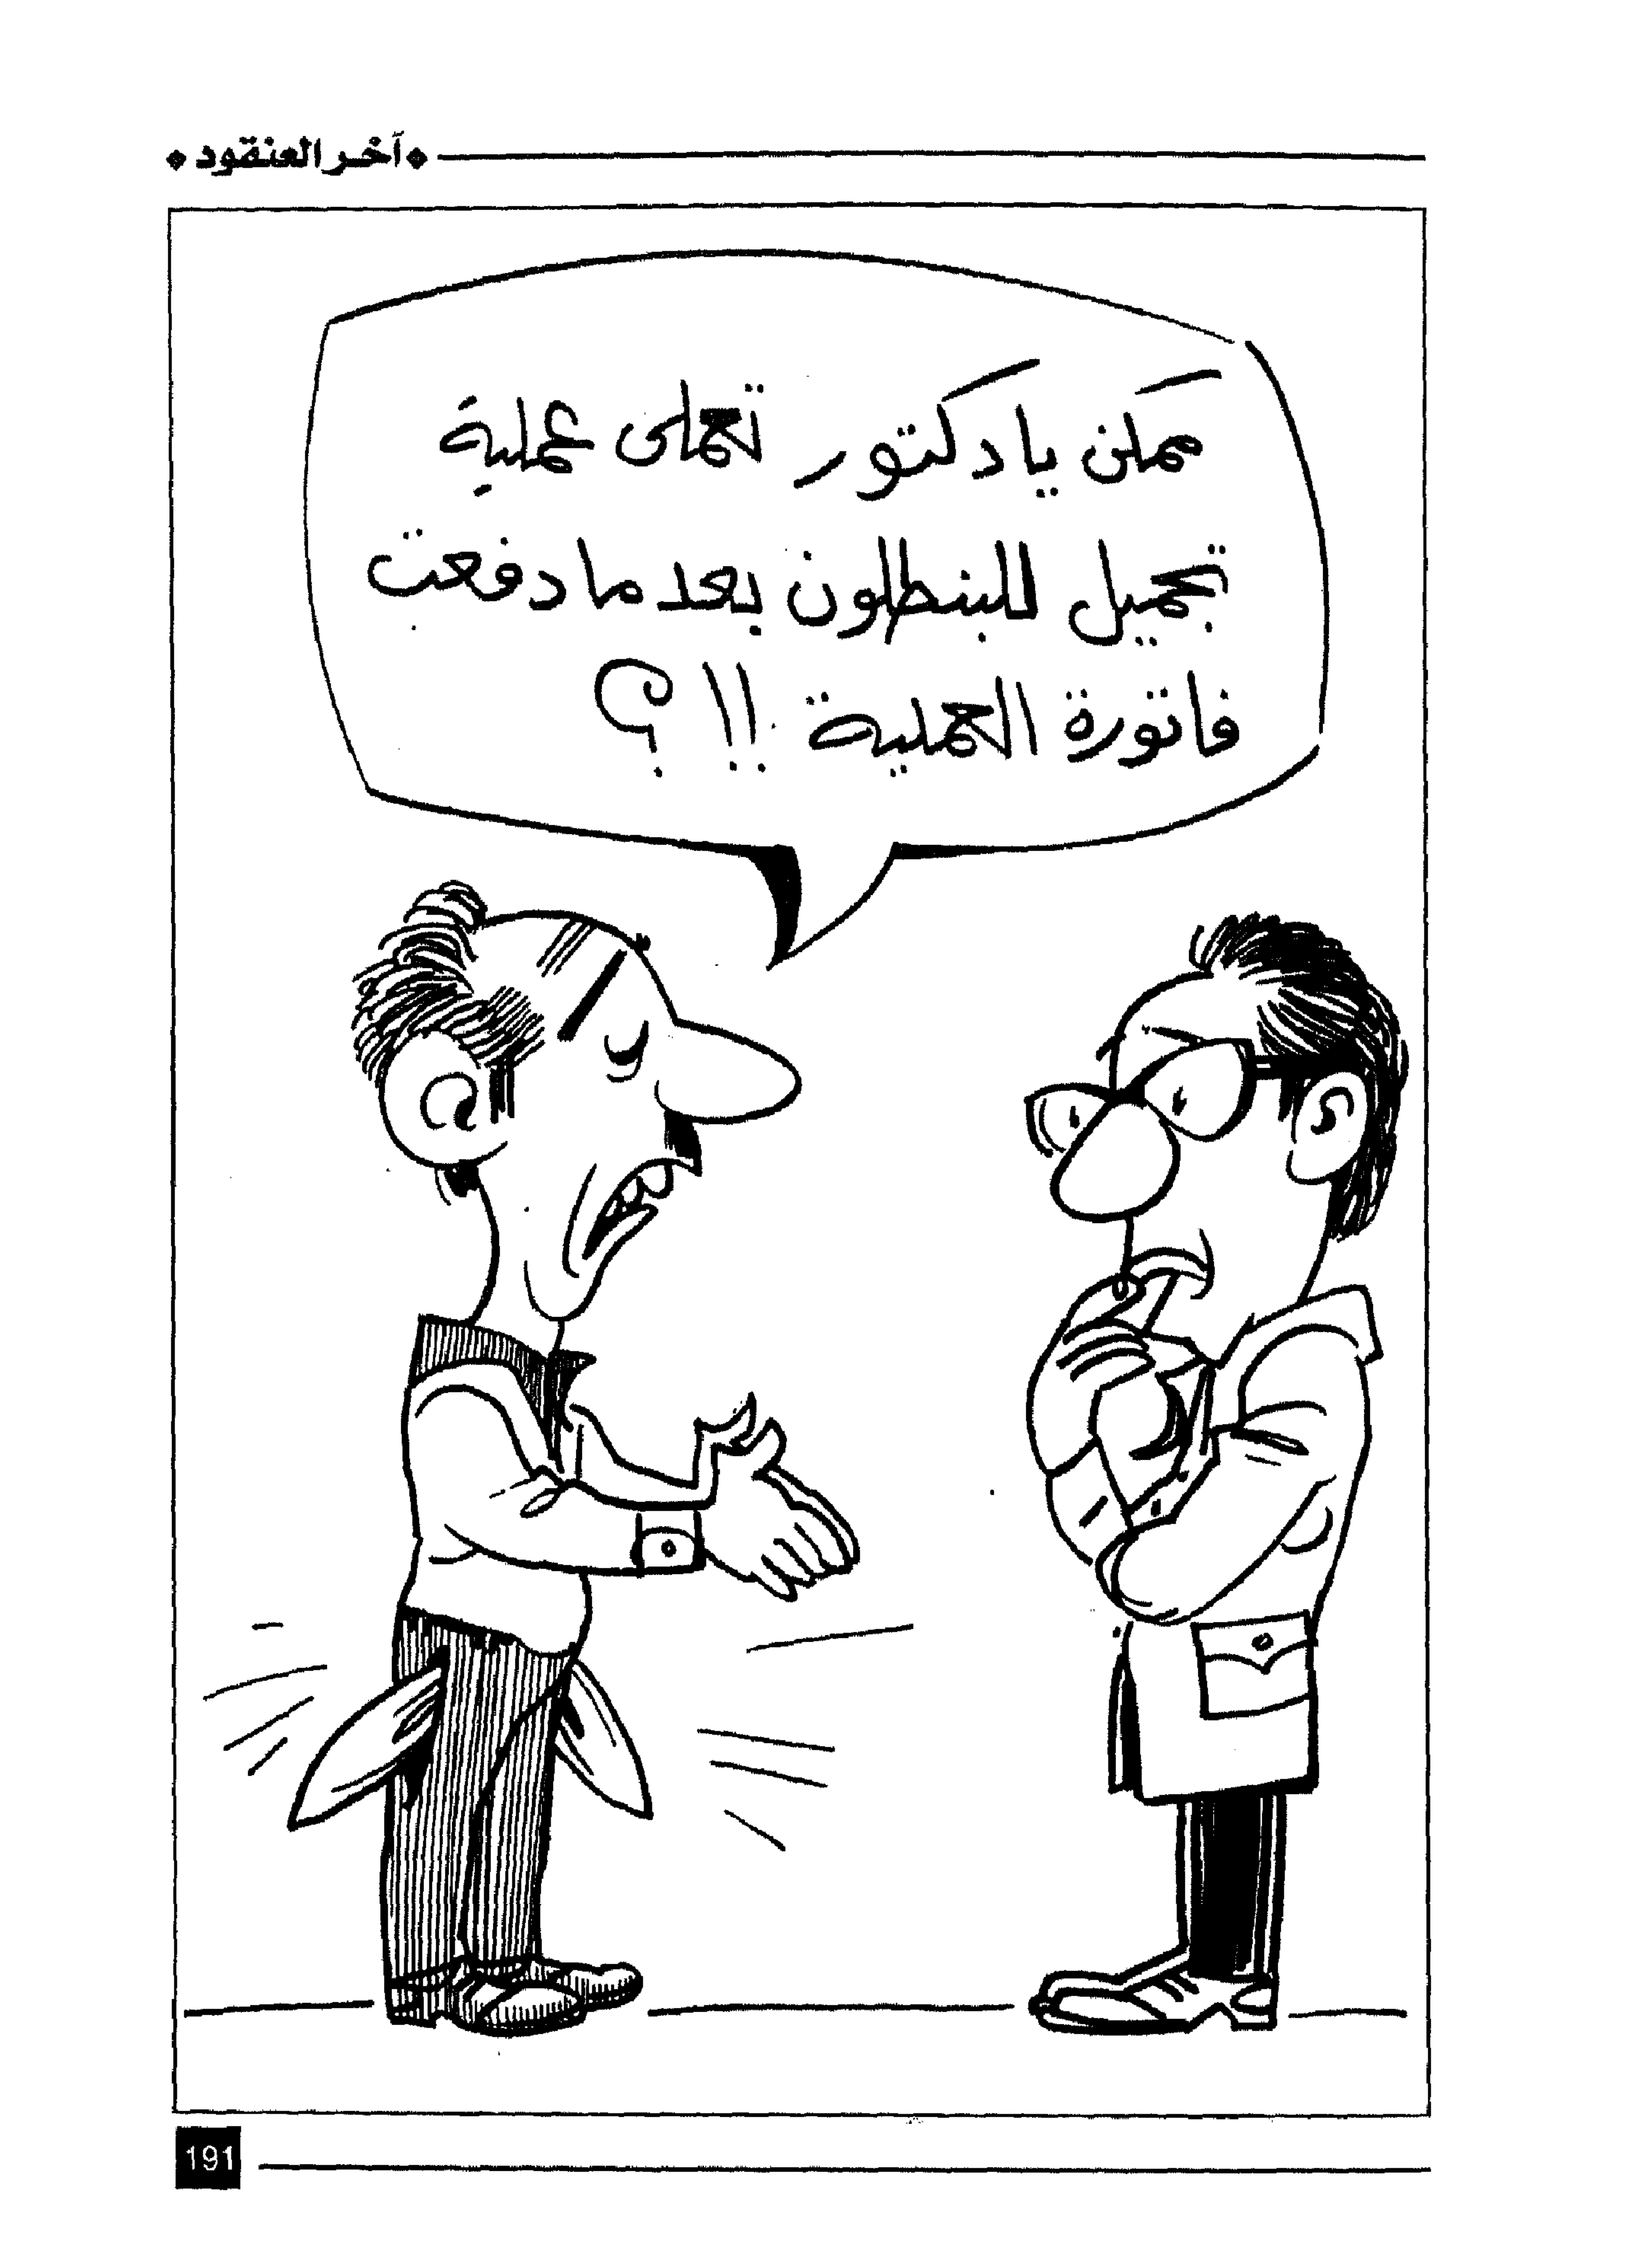 آخر العنقود
ممكن يا دكتور تعملى عملية
تجميل للبنطلون بعد ما دفعت
فاتورة العملية !!؟
191